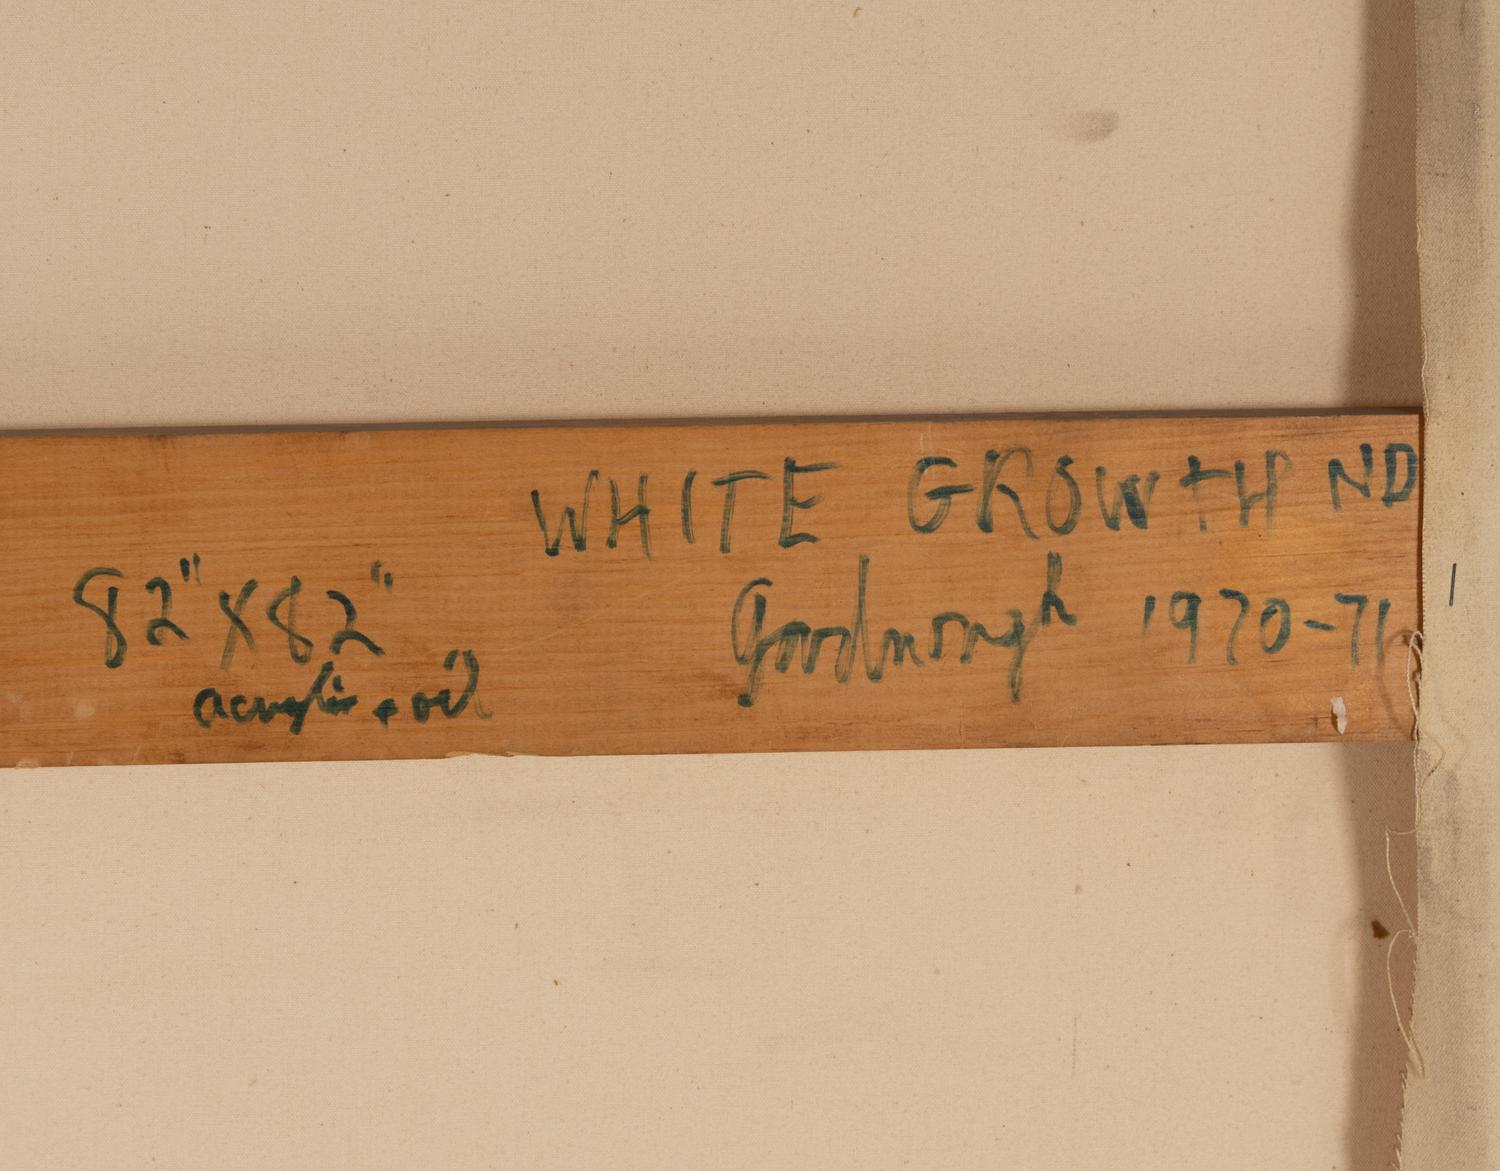 WHITE GROWTH ND
Goodnough 1970-71
82" X 82"
acrylic + oil